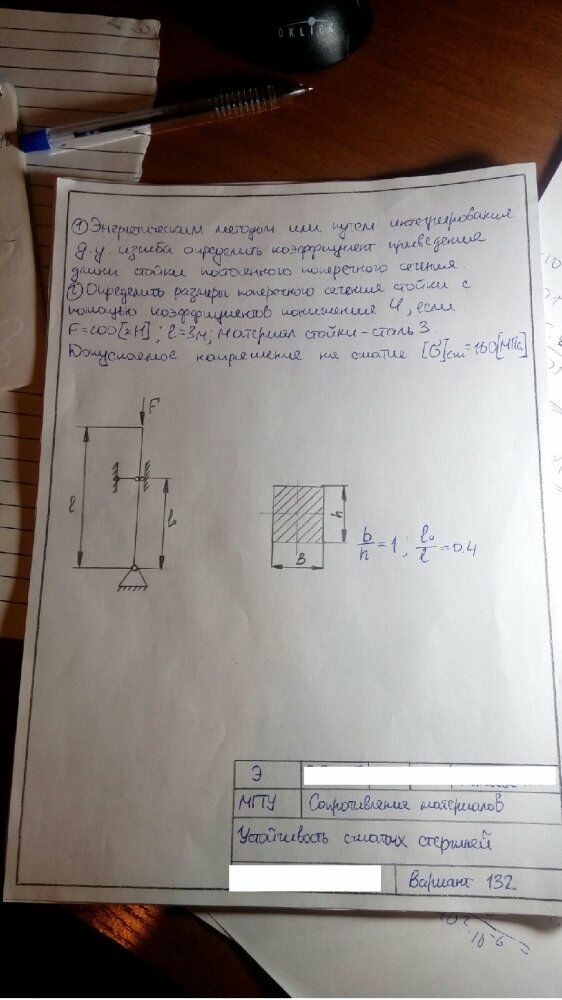 OKLICK
① Энергетическим методом или путем интегрирования
д.у. изгиба определить коэффициент приведения
длины стойки постоянного поперечного сечения.
② Определить размеры поперечного сечения стойки с
помощью коэффициентов понижения φ, если
F=200[кН]; l=3м; материал стойки-сталь 3.
Допускаемое напряжение на сжатие [σ]сж=160[МПа]
F
l
l₀
h
B
b/h=1; l₀/l=0.4
Э
МГТУ
Сопротивление материалов
Устойчивость сжатых стержней
Вариант 132